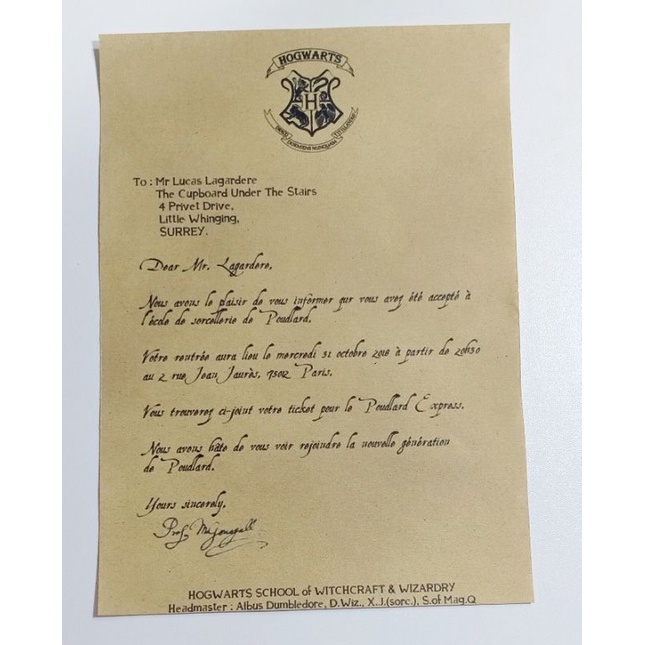 HOGWARTS
H
DRACO DORMIENS NUNQUAM TITILLANDUS
To : Mr Lucas Lagardere
The Cupboard Under The Stairs
4 Privet Drive,
Little Whinging,
SURREY.
Dear Mr. Lagardere,
Nous avons le plaisir de vous informer qur vous avez été accepté à
l'école de sorcellerie de Poudlard.
Votre rentrée aura lieu le mercredi 31 octobre 2018 à partir de 20h30
au 2 rue Jean Jaurès, 75012 Paris.
Vous trouverez ci-joint votre ticket pour le Poudlard Express.
Nous avons hâte de vous voir rejoindre la nouvelle génération
de Poudlard.
Yours sincerely,
Prof. McGonagall
HOGWARTS SCHOOL of WITCHCRAFT & WIZARDRY
Headmaster : Albus Dumbledore, D.Wiz., X.J.(sorc.), S.of Mag.Q